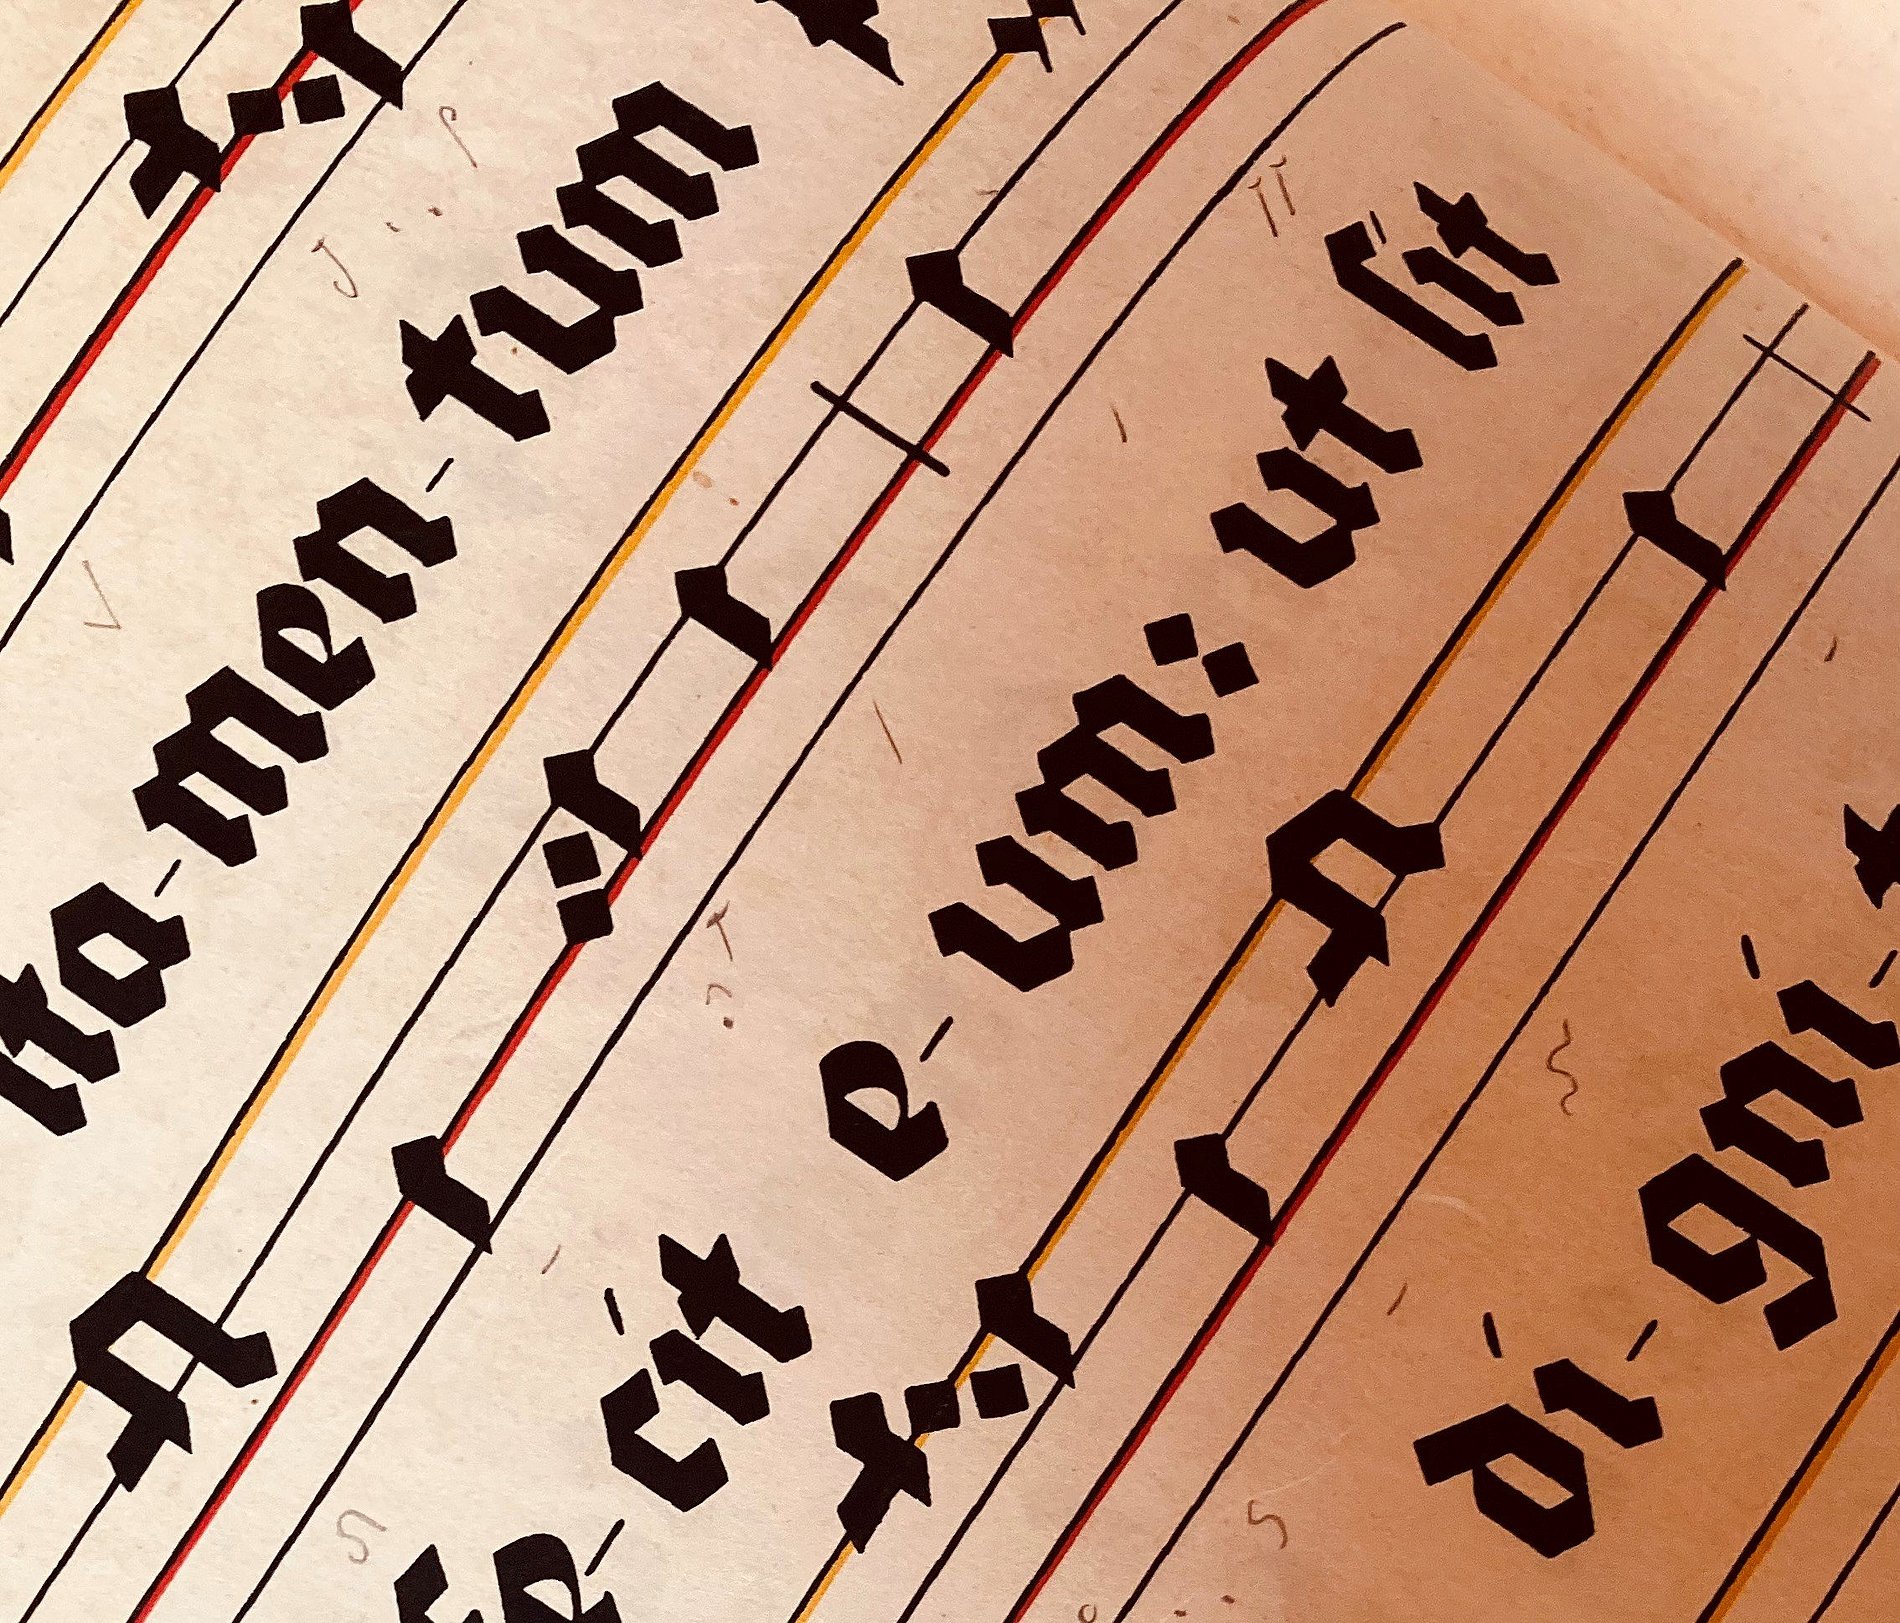 ſta-men-tum
fe-cit e-um: ut ſit
di-gni-t